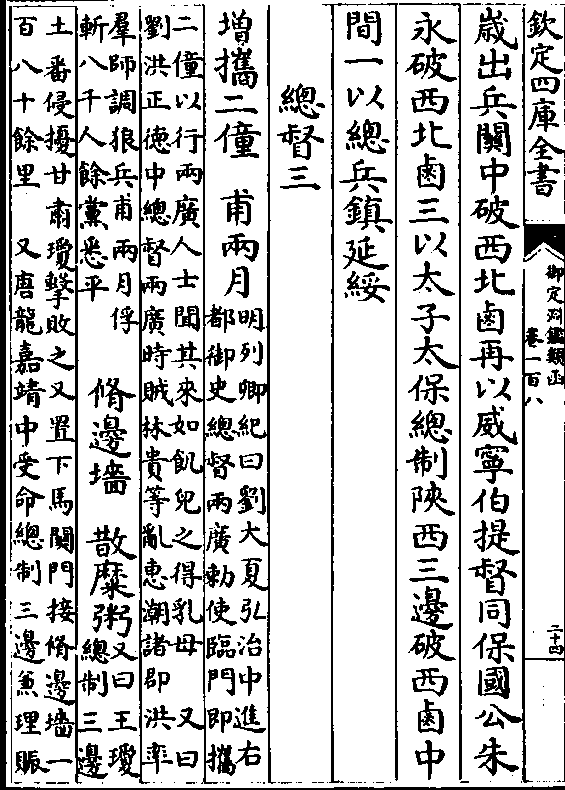 欽定四庫全書
御定淵鑑類函
卷一百八
二十四
歲出兵關中破西北鹵再以威寧伯提督同保國公朱
永破西北鹵三以太子太保總制陝西三邊破西鹵中
間一以總兵鎮延綏
總督三
增攜二僮
明列卿紀曰劉大夏弘治中進右
都御史總督兩廣勅使臨門即攜
二僮以行兩廣人士聞其來如飢兒之得乳母
甫兩月
又曰
劉洪正德中總督兩廣時賊林貴等亂惠潮諸郡洪率
羣師調狼兵甫兩月俘
斬八千人餘黨悉平
脩邊墻
散糜粥
又曰王瓊
總制三邊
土番侵擾甘肅瓊擊敗之又置下馬關門接脩邊墻一
百八十餘里
又唐龍嘉靖中受命總制三邊兼理賑